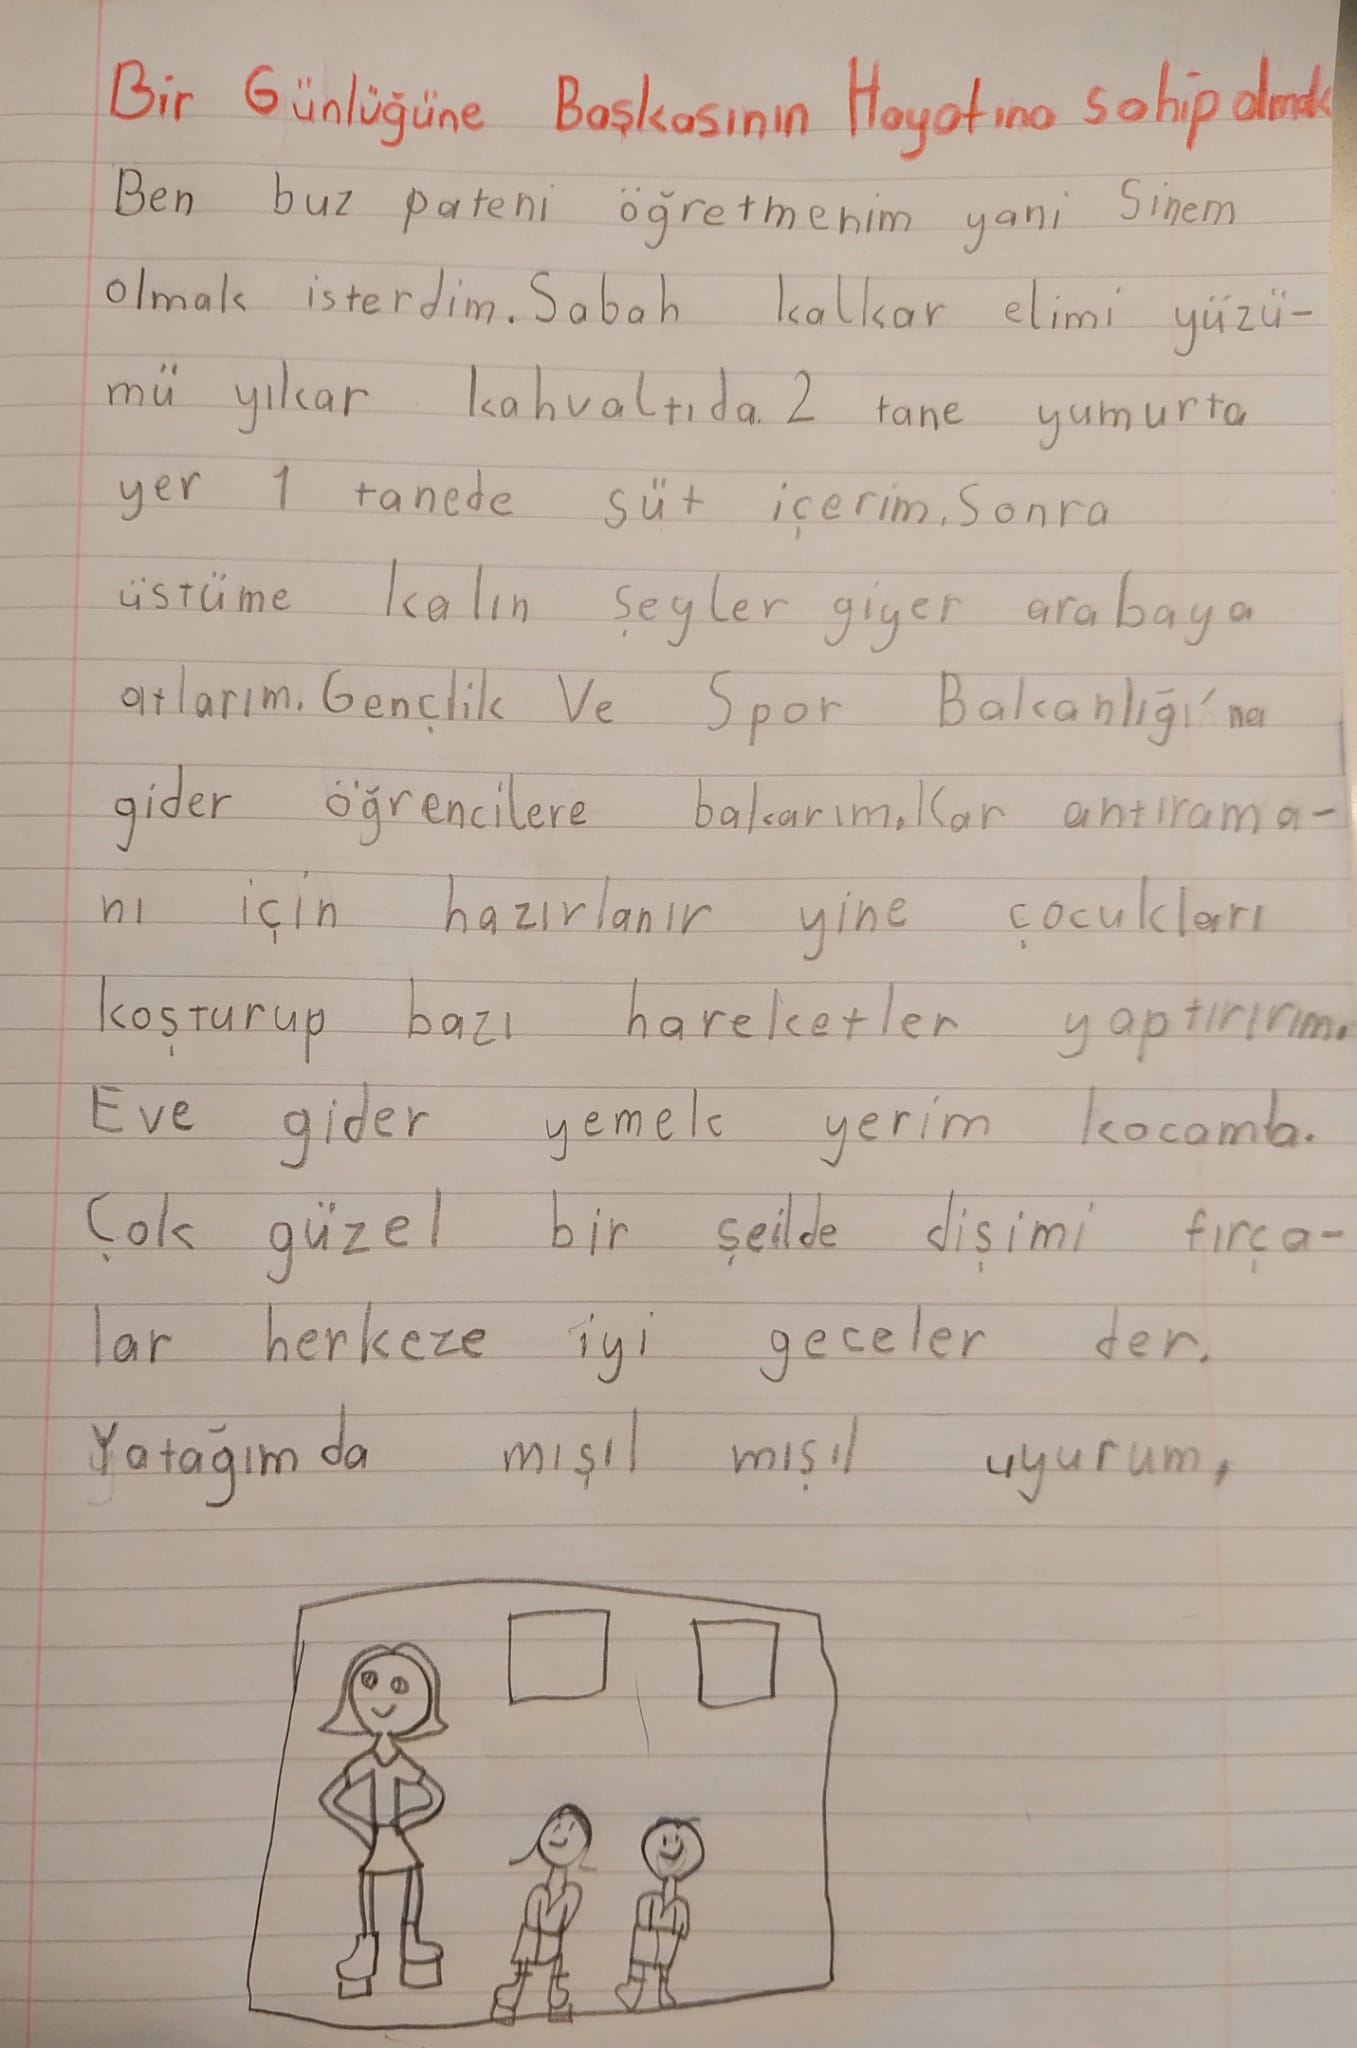 Bir Günlüğüne Başkasının Hayatına sahip olmak
Ben buz pateni öğretmenim yani Sinem
olmak isterdim. Sabah kalkar elimi yüzü-
mü yıkar kahvaltıda 2 tane yumurta
yer 1 tanede süt içerim. Sonra
üstüme kalın şeyler giyer arabaya
atlarım. Gençlik Ve Spor Bakanlığı'na
gider öğrencilere bakarım. Kar antırama-
nı için hazırlanır yine çocukları
koşturup bazı hareketler yaptırırım.
Eve gider yemek yerim kocamla.
Çok güzel bir şeilde dişimi fırça-
lar herkeze iyi geceler der.
Yatağımda mışıl mışıl uyurum.